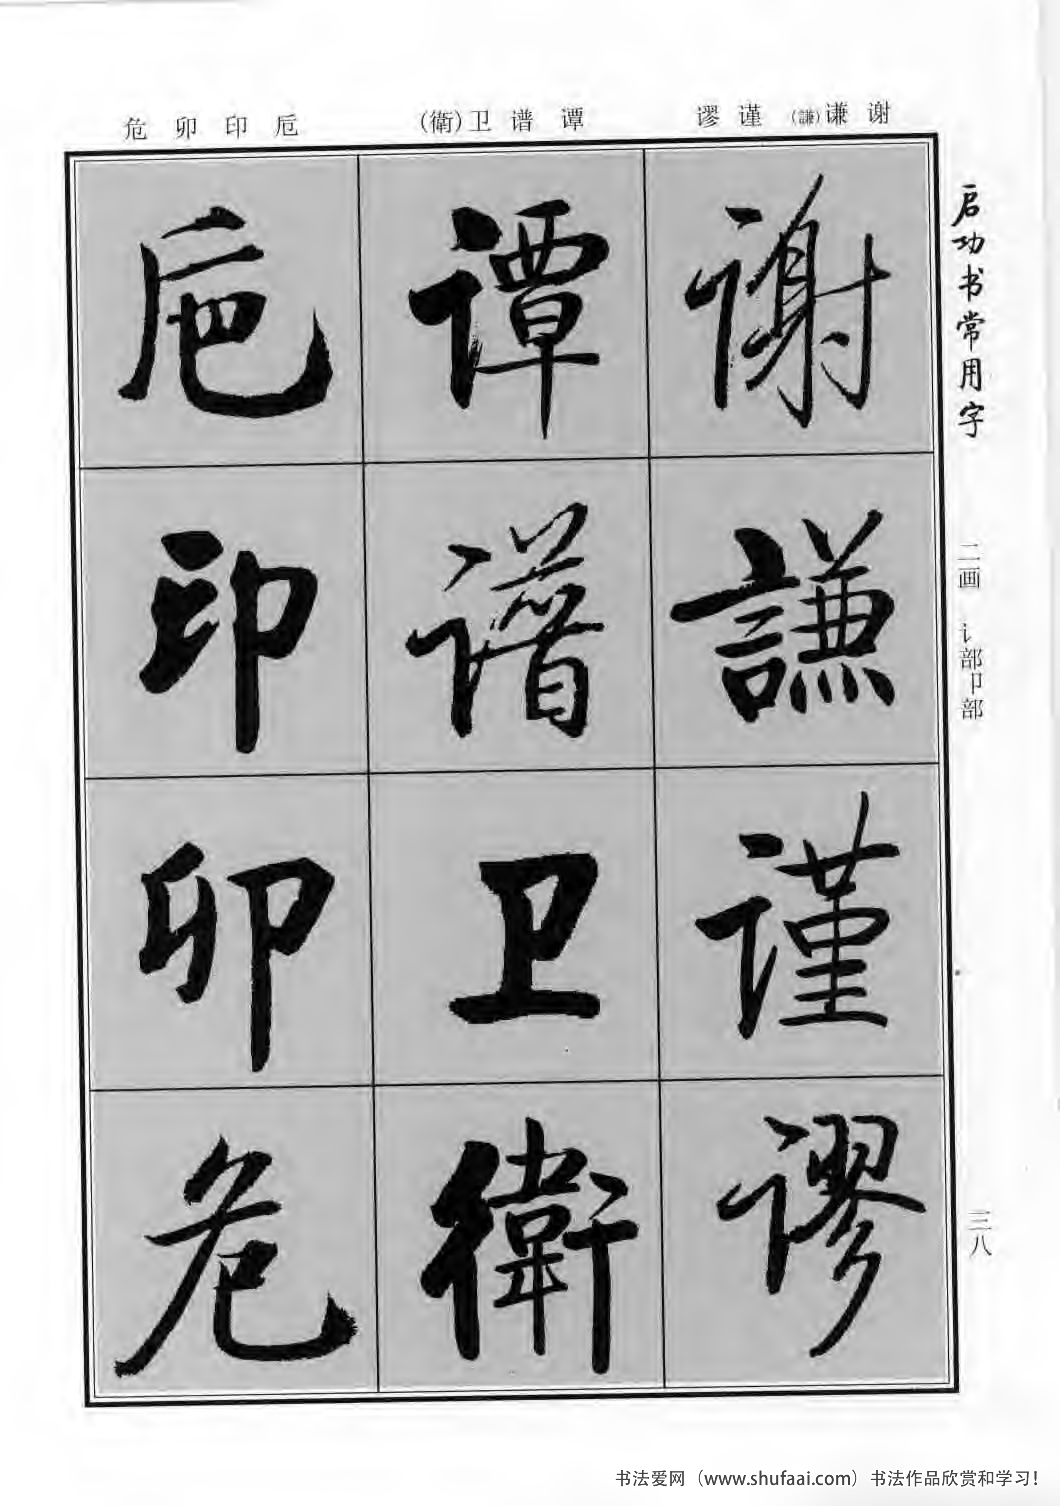 谢谦(謙)谨谬
谭谱卫(衛)
卮印卯危
启功书常用字
二画 讠部卩部
三八
谢
謙
谨
谬
谭
谱
卫
衛
卮
印
卯
危
书法爱网（www.shufaai.com）书法作品欣赏和学习！